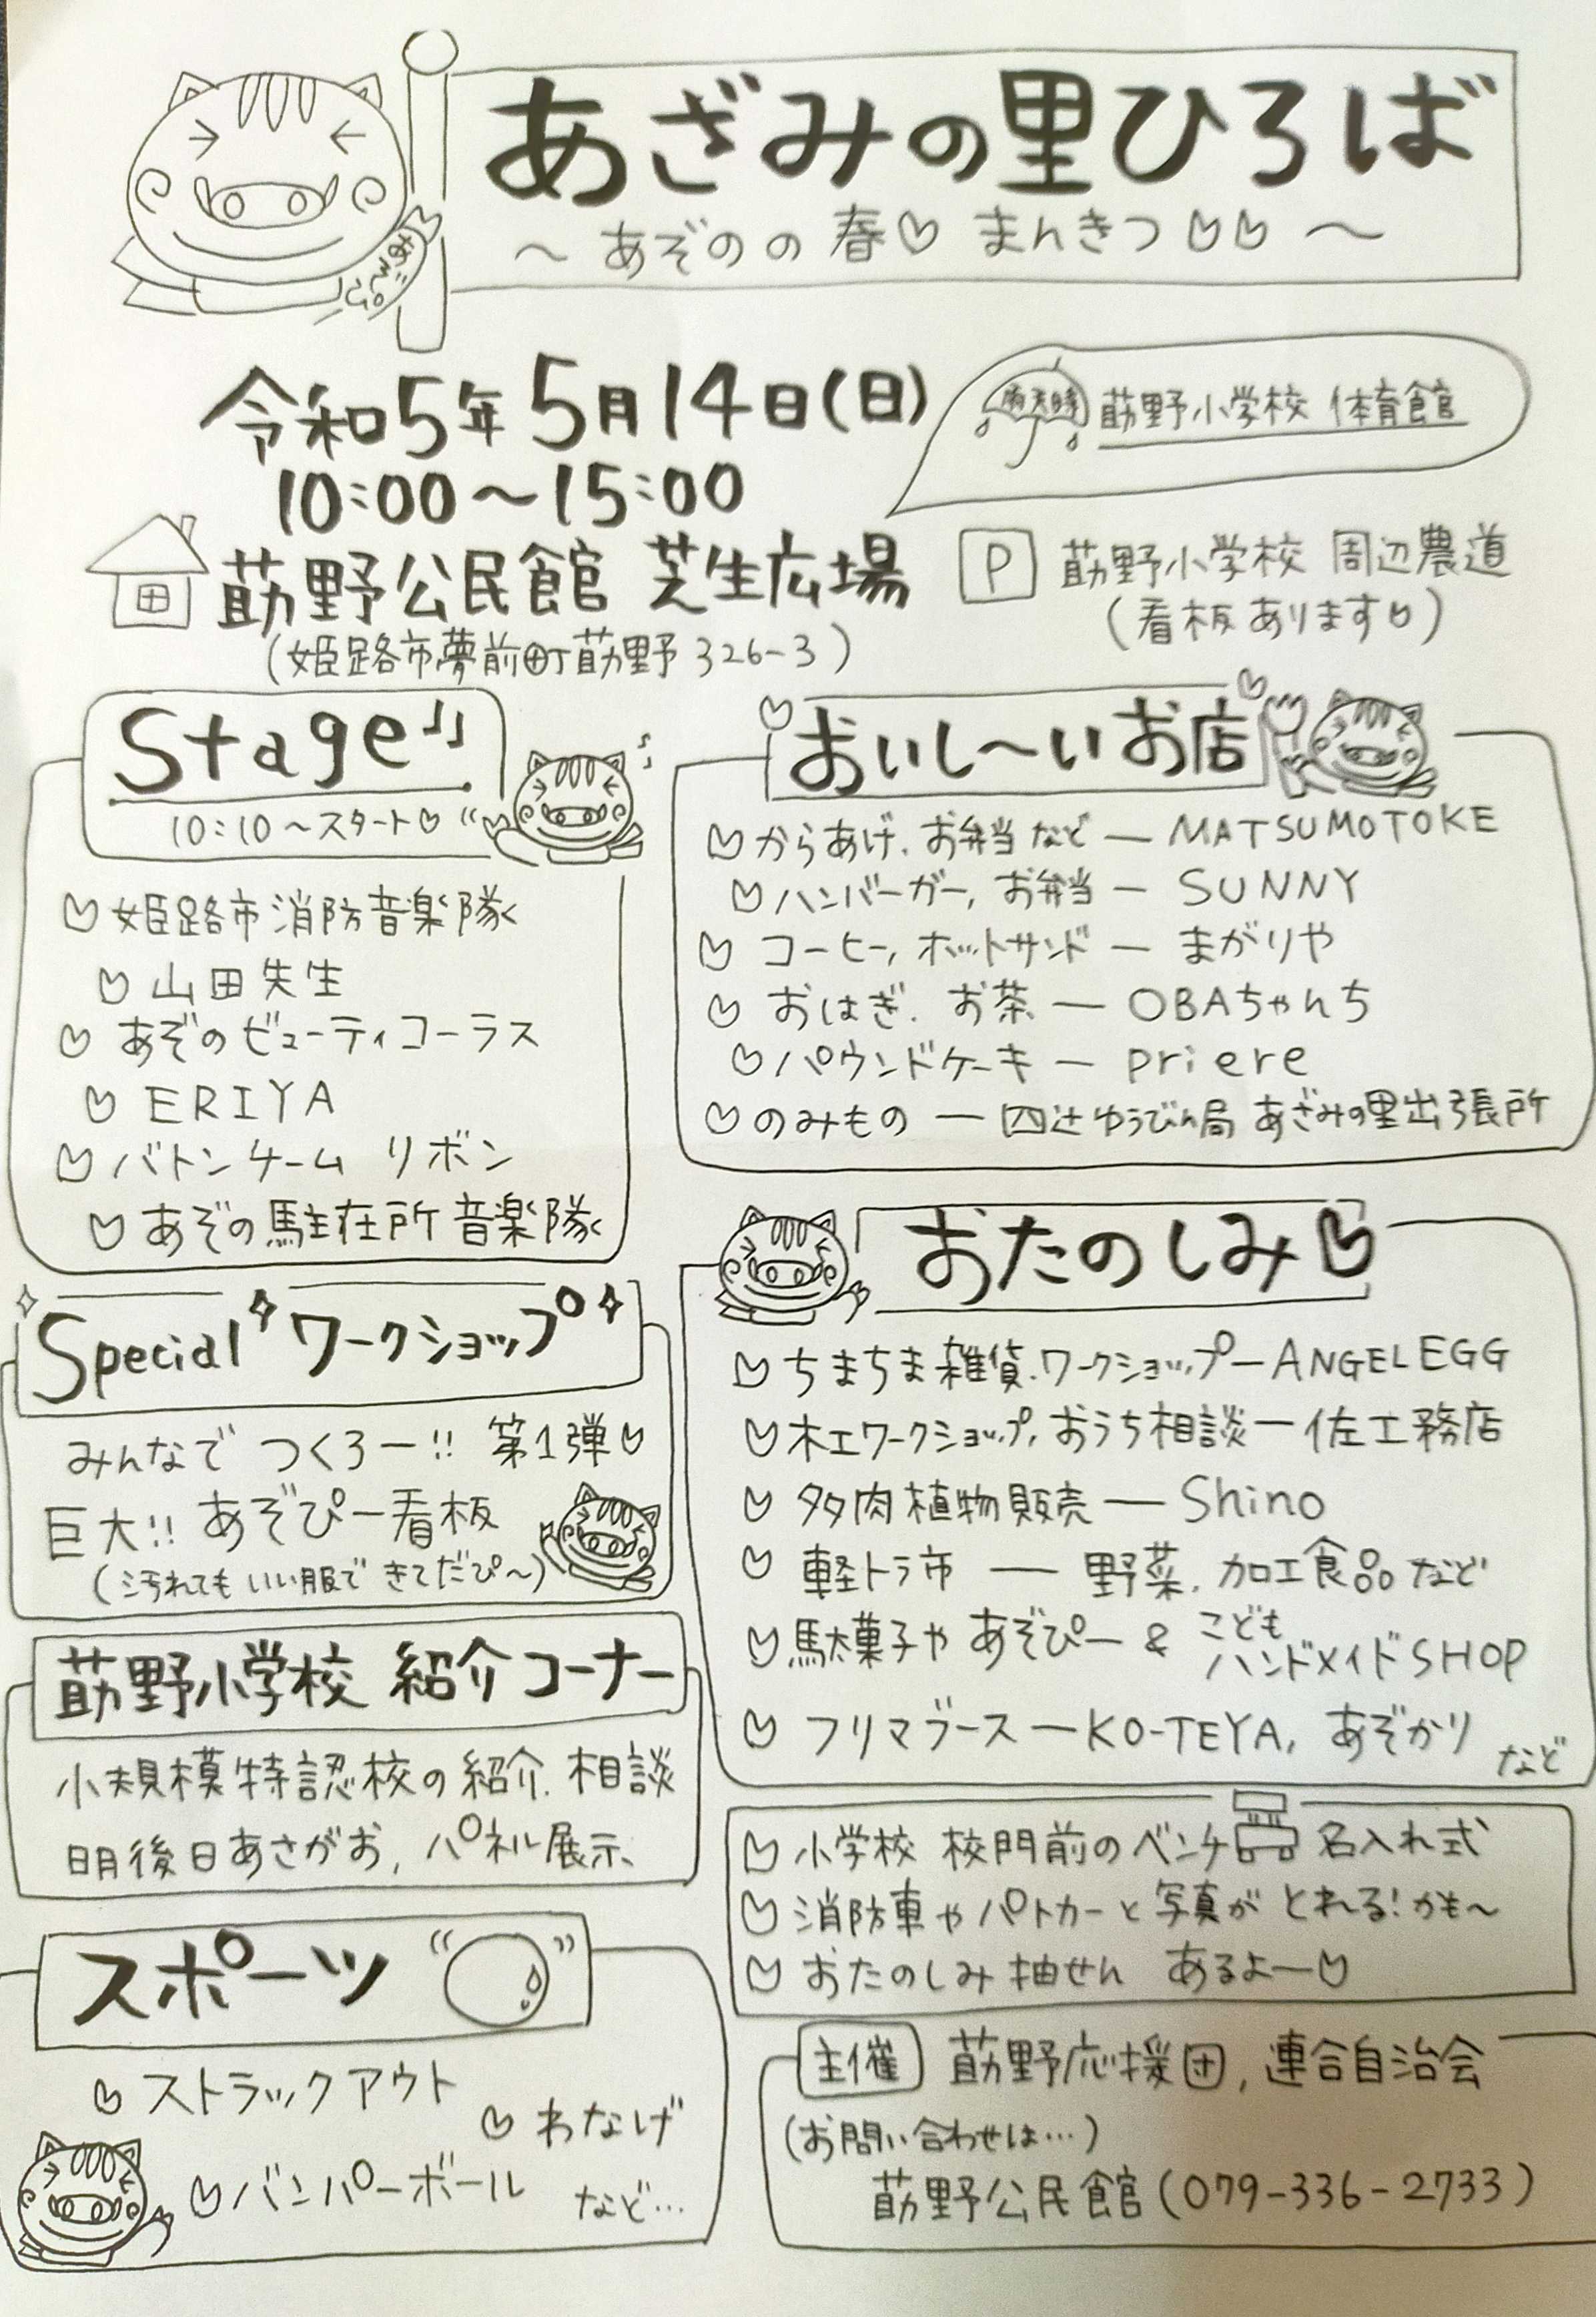 あざみの里ひろば
～あぞのの春♡まんきつ♡♡～
令和5年5月14日(日)
10:00～15:00
雨天時 莇野小学校 体育館
莇野公民館 芝生広場
(姫路市夢前町莇野326-3)
P 莇野小学校 周辺農道
(看板あります♡)
Stage♪♪
10:10～スタート♡
♡姫路市消防音楽隊
♡山田先生
♡あぞのビューティコーラス
♡ERIYA
♡バトンチーム リボン
♡あぞの駐在所音楽隊
おいし～いお店
♡からあげ、お弁当など―MATSUMOTOKE
♡ハンバーガー、お弁当―SUNNY
♡コーヒー、ホットサンド―まがりや
♡おはぎ、お茶―OBAちゃんち
♡パウンドケーキ―priere
♡のみもの―四辻ゆうびん局 あざみの里出張所
Special ワークショップ
みんなで つくろー!! 第1弾♡
巨大!! あぞぴー看板
(汚れてもいい服できてだぴ～)
おたのしみ♡
♡ちまちま雑貨、ワークショップ―ANGEL EGG
♡木工ワークショップ、おうち相談―佐工務店
♡多肉植物販売―Shino
♡軽トラ市―野菜、加工食品など
♡駄菓子や あぞぴー & こどもハンドメイドSHOP
♡フリマブース―KO-TEYA, あぞかり など
莇野小学校 紹介コーナー
小規模特認校の紹介、相談
明後日あさがお、パネル展示、
♡小学校 校門前のベンチ 名入れ式
♡消防車やパトカーと写真がとれる!かも～
♡おたのしみ抽せん あるよー♡
スポーツ
♡ストラックアウト
♡わなげ
♡バンパーボール など…
主催 莇野応援団、連合自治会
(お問い合わせは…)
莇野公民館(079-336-2733)